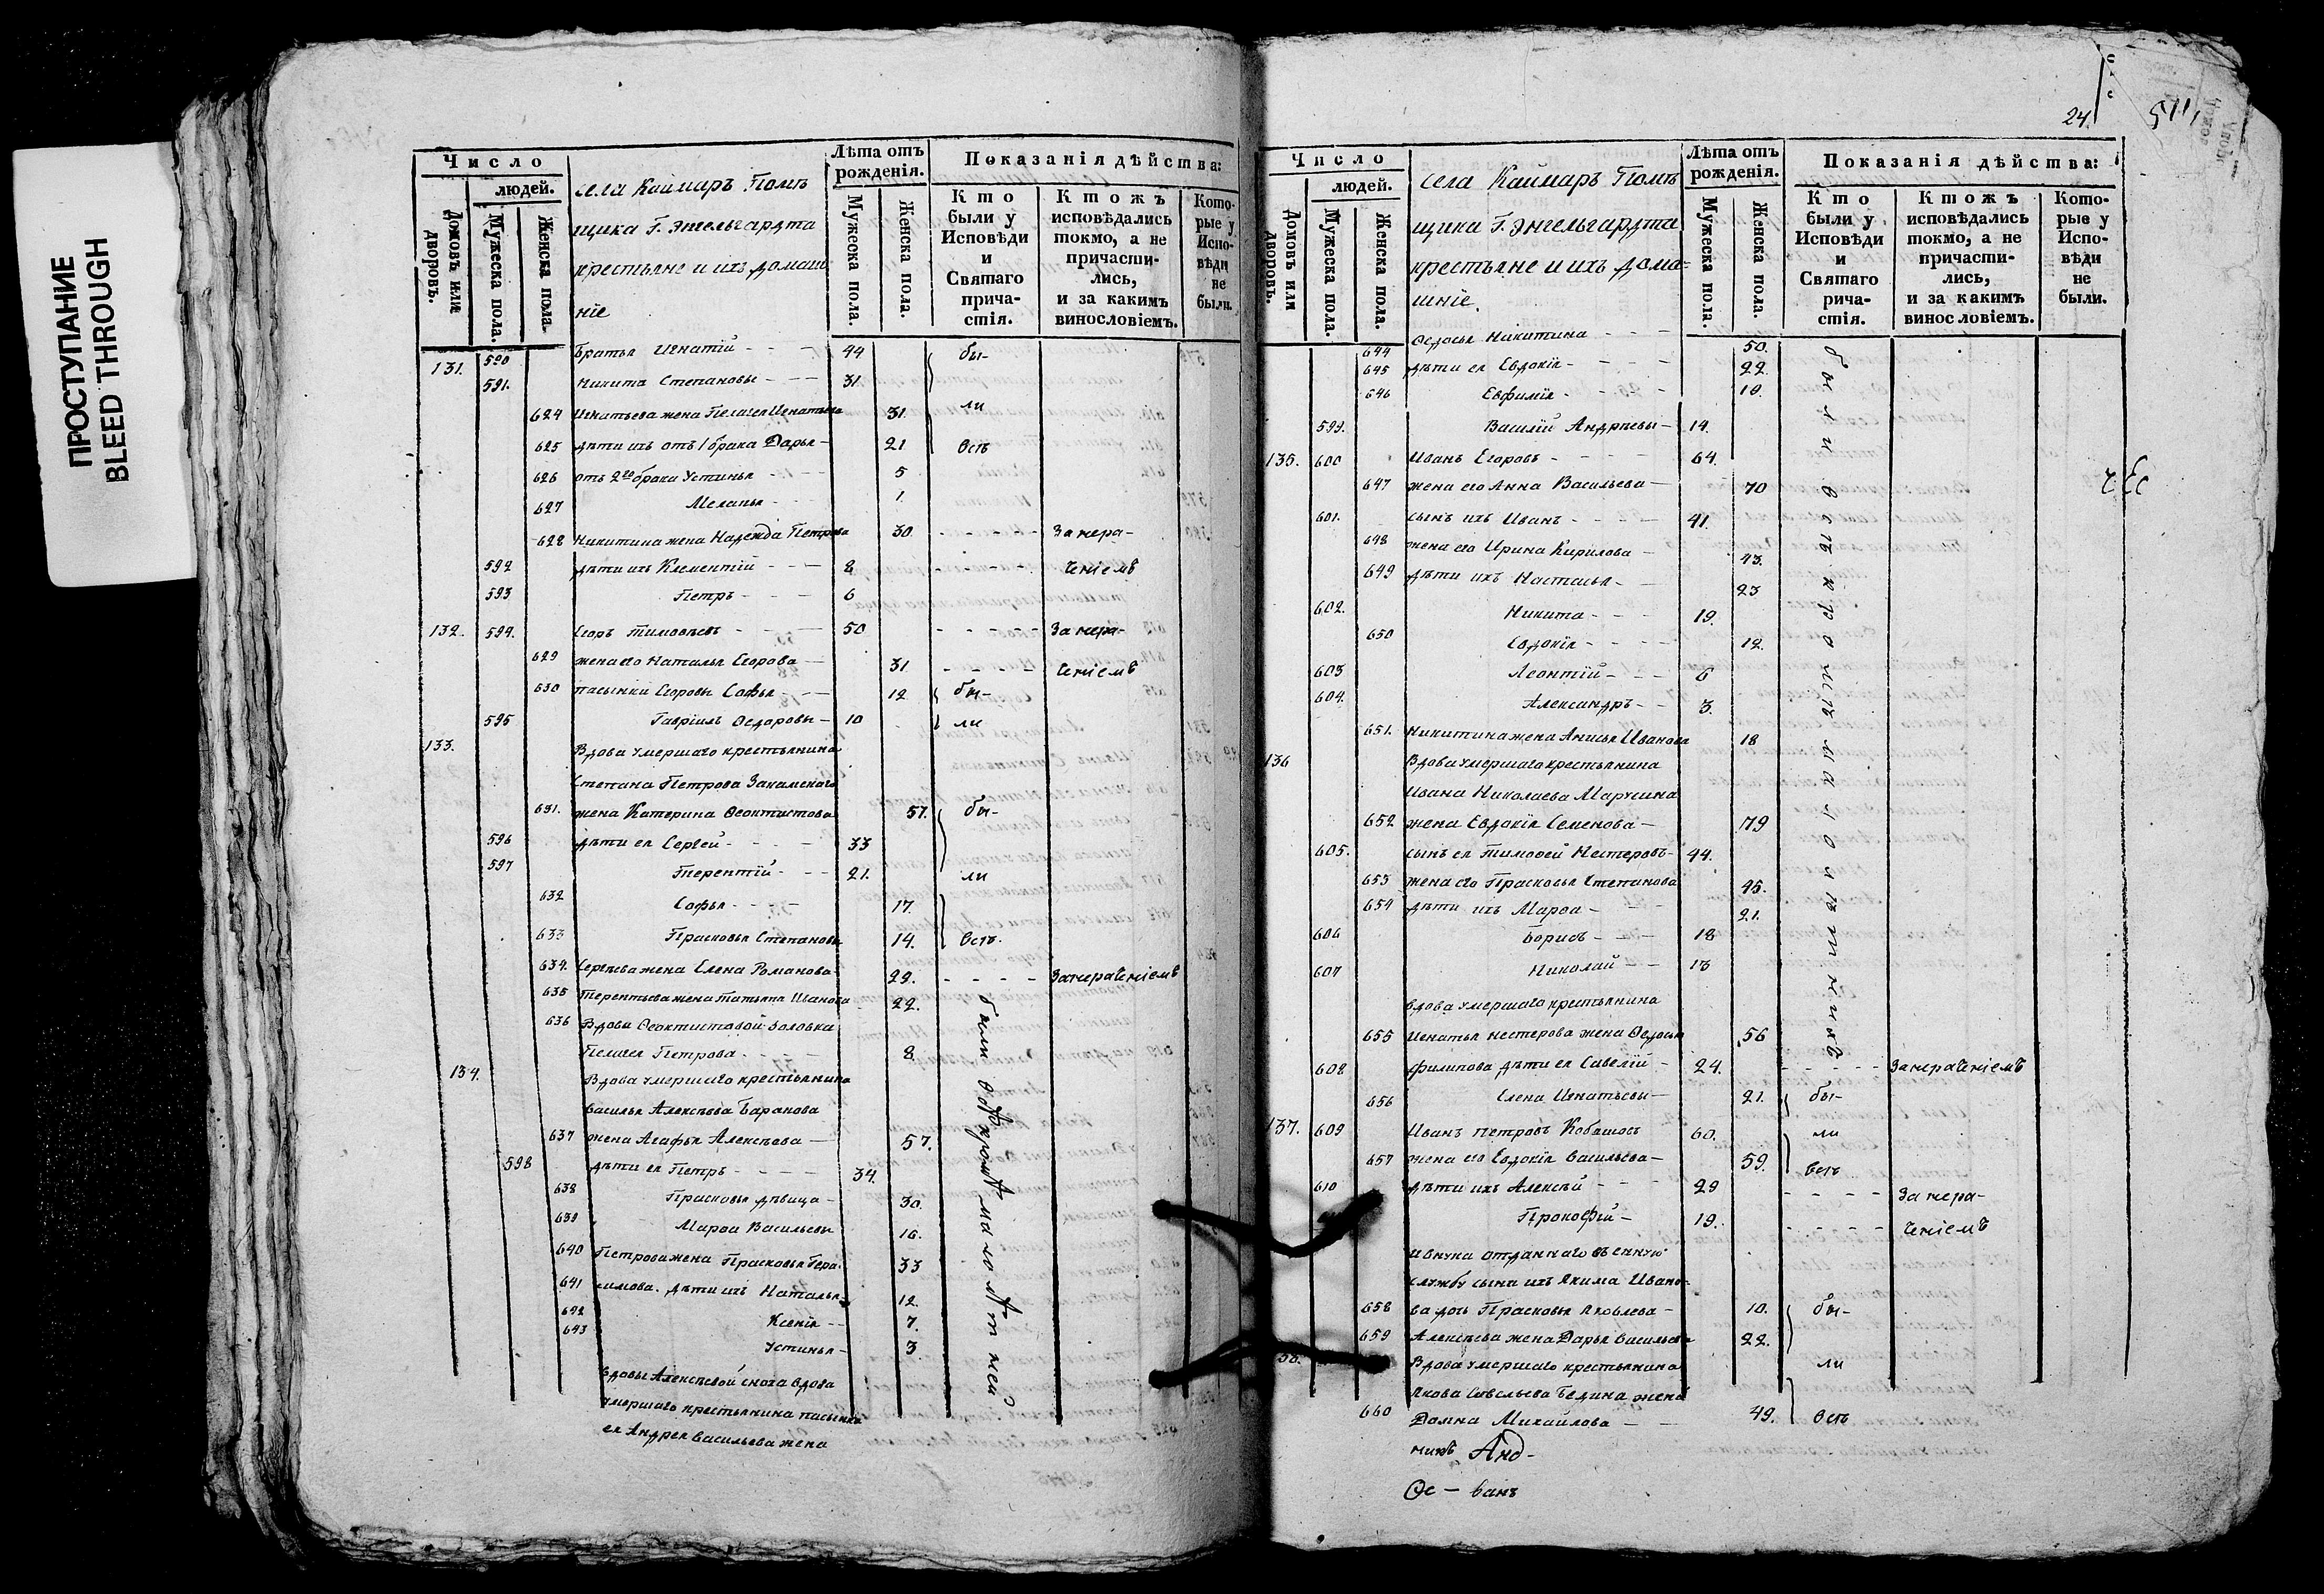 ПРОСТУПАНИЕ
BLEED THROUGH
Число
людей.
Домовъ или дворовъ.
Мужеска пола.
Женска пола.
села Каймаръ Помѣ
щика Г. Энгельгардта
крестьяне и ихъ домаш
ніе
Лѣта отъ рожденія.
Мужеска пола.
Женска пола.
Показанія дѣйства:
Кто были у Исповѣди и Святаго прича-стія.
Ктожъ исповѣдались токмо, а не причасти-лись, и за какимъ винословіемъ.
Кото-рые у Испо-вѣди не были.
131. 590 Братья Игнатій - - - 44 бы-
591. Никита Степановы - - - 31
624 Игнатьева жена Пелагея Игнатьева 31. ли
625 дѣти ихъ отъ 1 брака Дарья - 21 всѣ
626 отъ 2го брака Устинья - - - 5
627 Меланья - - - 1
628 Никитина жена Надежда Петрова 30 - - - - За нера-
592 дѣти ихъ Клементій - - - 8 - - - - ченіемъ
593 Петръ - - - 6
132. 594. Егоръ Тимоѳеевъ - - - 50 - - - - За нера-
629 жена его Наталья Егорова - 31 - - - - ченіемъ
630 пасынки Егоровы Софья - - 12 бы-
595 Гавріилъ Ѳедоровы - 10 ли
133. Вдова умершаго крестьянина
Степана Петрова Закамскаго
631. жена Катерина Ѳеоктистова 57. бы-
596 дѣти ея Сергей - - - - 33
597 Терентій - - - 21. ли
632 Софья - - - - 17.
633 Прасковья Степановы 14. всѣ.
634. Сергѣева жена Елена Романова 22. - - - - За нераченіемъ
635 Терентьева жена Татьяна Иванова 22.
636 Вдовы Ѳеоктистовой золовка
Пелагея Петрова - - - 8
134. Вдова умершаго крестьянина
Василья Алексѣева Баранова
637 жена Агафья Алексѣева - 57.
598 дѣти ея Петръ - - - - 34.
638 Прасковья дѣвица - 30.
639 Марѳа Васильевы 16.
640 Петрова жена Прасковья Гера- 33
641 симова. дѣти ихъ Наталья - 12.
642 Ксенія - - 7.
643 Устинья - 3
были всѣ кромѣ малолѣтней
вдовы Алексѣевой сноха вдова
умершаго крестьянина пасынка
ея Андрея Васильева жена
24.
511
Число
людей.
Домовъ или дворовъ.
Мужеска пола.
Женска пола.
села Каймаръ Помѣ
щика Г. Энгельгардта
крестьяне и ихъ дома=
шніе.
Лѣта отъ рожденія.
Мужеска пола.
Женска пола.
Показанія дѣйства:
Кто были у Исповѣди и Святаго рича-стія.
Ктожъ исповѣдались токмо, а не причасти-лись, и за какимъ винословіемъ.
Кото-рые у Испо-вѣди не были.
644 Ѳедосья Никитина - - - 50.
645 дѣти ея Евдокія - - - - 22.
646 Евфимія - - - - 18.
599. Василій Андреевы - 14.
135. 600 Иванъ Егоровъ - - - - 64.
647 жена его Анна Васильева - 70
601. сынъ ихъ Иванъ - - - - 41.
648 жена его Ирина Кирилова - 43.
649 дѣти ихъ Настасья - - 23
602. Никита - - - 19.
650 Евдокія - - - - 12.
603 Леонтій - - - 6
604. Александръ - - 3.
651. Никитина жена Анисья Иванова 18
136 Вдова умершаго крестьянина
Ивана Николаева Марушина
652 жена Евдокія Семенова - 79
605. сынъ ея Тимоѳей Нестеровъ - 44.
653 жена его Прасковья Степанова 45.
654 дѣти ихъ Марѳа - - - 21.
606 Борисъ - - - 18
607 Николай - - 13
были всѣ кромѣ малолѣтнихъ
вдова умершаго крестьянина
655 Игнатья Нестерова жена Ѳедосья 56
608 Филипова дѣти ея Савелій - 24. - - - - За нераченіемъ
656 Елена Игнатьевы - 21. бы-
137. 609 Иванъ Петровъ Кобашовъ 60. ли
657 жена его Евдокія Васильева - 59. всѣ
610 дѣти ихъ Алексѣй - - - 29 - - - - За нера-
Прокофій - 19. - - - - ченіемъ
и внука отданнаго въ енную
службу сына ихъ Якима Ивано-
658 ва дочь Прасковья Яковлева - 10. бы-
659 Алексѣева жена Дарья Васильева 22.
38. Вдова умершаго крестьянина ли
Якова Савельева Бедина жена
660 Домна Михайлова - - 49. всѣ
никъ Анд-
Ѳе - ванъ